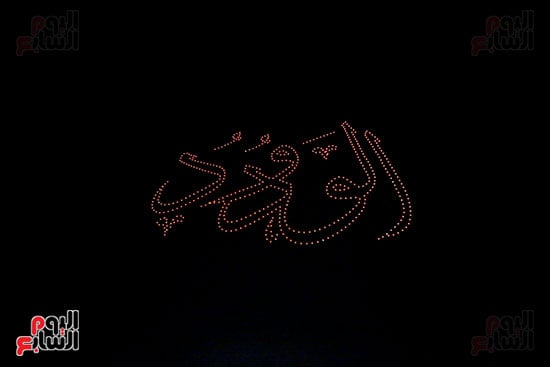 اليوم السابع
اليوم السابع
الْوَدُودُ
اليوم السابع
اليوم السابع